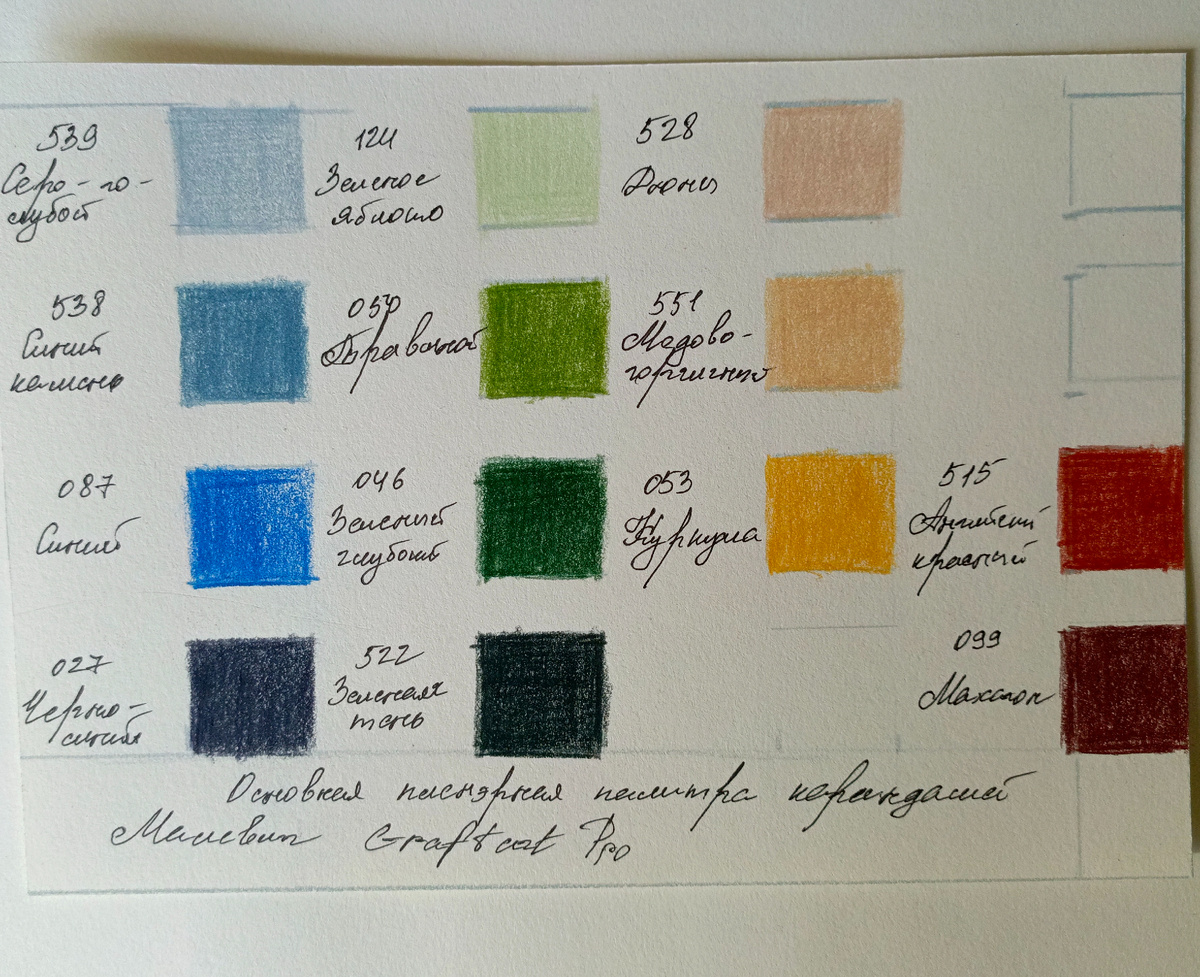 539
Серо-го-
лубой
124
Зеленое
яблоко
528
Дюны
538
Синий
камень
050
Травяной
551
Медово-
горчичный
087
Синий
046
Зеленый
глубокий
053
Куркума
515
Английский
красный
027
Черно-
синий
522
Зеленая
тень
099
Махагон
Основная пленэрная палитра карандашей
Малевичъ Graftart Pro